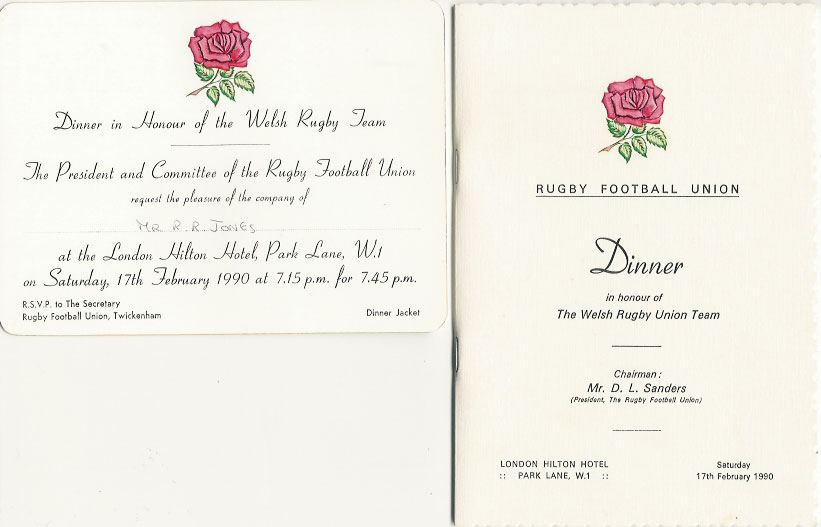 Dinner in Honour of the Welsh Rugby Team
The President and Committee of the Rugby Football Union
request the pleasure of the company of
MR R.R. JONES
at the London Hilton Hotel, Park Lane, W.1
on Saturday, 17th February 1990 at 7.15 p.m. for 7.45 p.m.
R.S.V.P. to The Secretary
Rugby Football Union, Twickenham
Dinner Jacket
RUGBY FOOTBALL UNION
Dinner
in honour of
The Welsh Rugby Union Team
Chairman:
Mr. D. L. Sanders
(President, The Rugby Football Union)
LONDON HILTON HOTEL
:: PARK LANE, W.1 ::
Saturday
17th February 1990